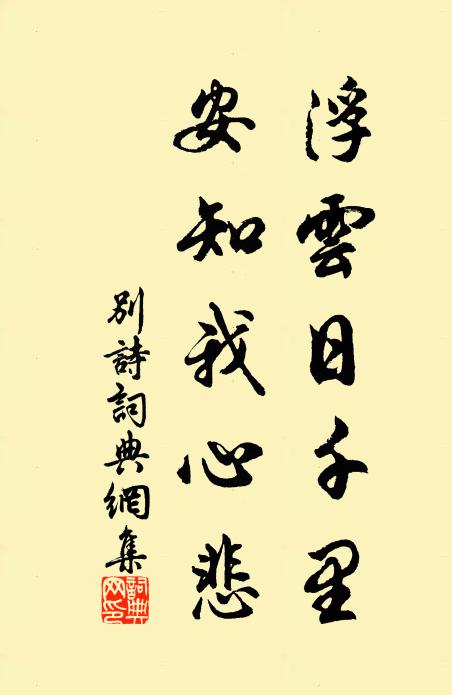 浮雲日千里
安知我心悲
別詩詞典網集
詞典网印